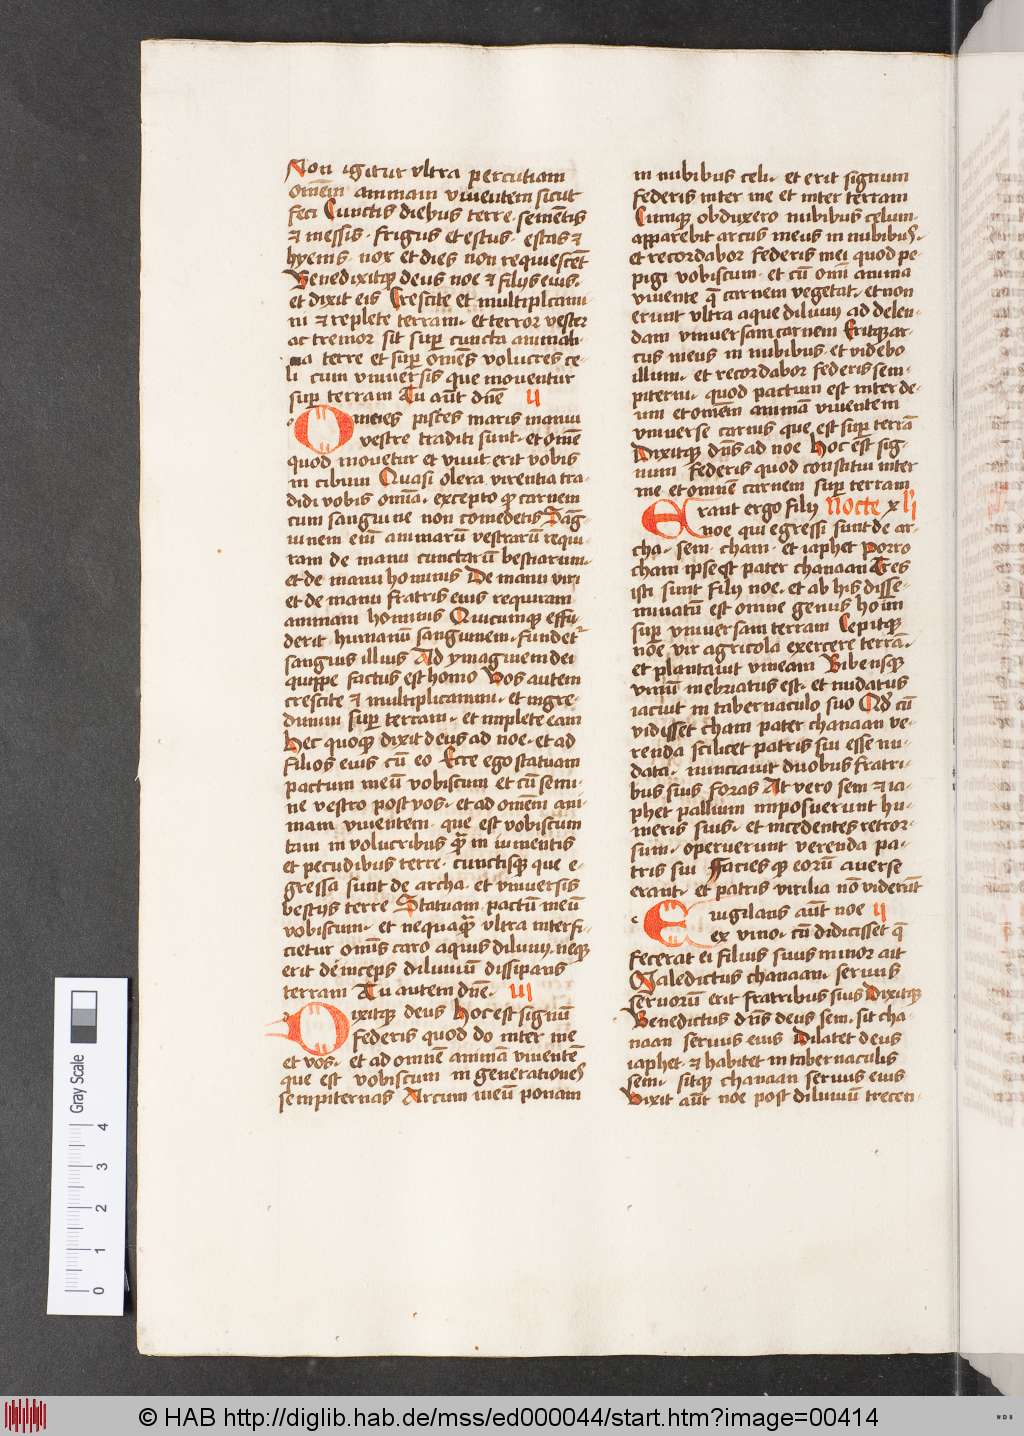 Non igitur vltra percutiam
om̄em animam viuentem sicut
feci Cunctis diebus terre · sementis
⁊ messis · frigus et estus · estas ⁊
hyems · nox et dies non requiescēt
Benedixitqꝫ deus noe ⁊ filijs eius ·
et dixit eis Crescite et multiplicami
ni ⁊ replete terram · et terror vester
ac tremor sit sup̄ cuncta animali
a terre et sup̄ om̄es volucres ce-
li cum vniuersis que mouentur
sup̄ terram Tu aūt dn̄e ij
Omnes pisces maris manui
vestre traditi sunt · et om̄e
quod mouetur et viuit erit vobis
in cibum Quasi olera virentia tra-
didi vobis om̄ia · excepto qꝫ carnem
cum sanguine non comedetis Sāg-
uinem eni̅ animarū vestrarū requi-
ram de manu cunctarū bestiarum ·
et de manu hominis De manu viri
et de manu fratris eius requiram
animam hominis Quicumqꝫ effu-
derit humanū sanguinem · fundet᷑
sanguis illius Ad ymaginem dei
quippe factus est homo Vos autem
crescite ⁊ multiplicamini · et ingre-
dimini sup̄ terram · et implete eam
Hec quoqꝫ dixit deus ad noe · et ad
filios eius cū eo Ecce ego statuam
pactum meū vobiscum et cū semi-
ne vestro post vos · et ad om̄em ani-
mam viuentem · que est vobiscum
tam in volucribus q̄m in iumentis
et pecudibus terre · cunctisqꝫ que e-
gressa sunt de archa · et vniuersis
bestijs terre Statuam pactū meū
vobiscum · et nequaq̄m vltra interfi-
cietur om̄is caro aquis diluuij · neqꝫ
erit deinceps diluuiū dissipans
terram Tu autem dn̄e · iij
Dixitqꝫ deus Hoc est signū
federis quod do inter me
et vos · et ad omnē animā viuentē
que est vobiscum in generationes
sempiternas Arcum meū ponam
in nubibus celi · et erit signum
federis inter me et inter terram
Cumqꝫ obduxero nubibus celum ·
apparebit arcus meus in nubibus ·
et recordabor federis mei quod pe-
pigi vobiscum · et cū om̄i anima
viuente q̄ carnem vegetat · et non
erunt vltra aque diluuij ad delen-
dam vniuersam carnem Eritqꝫ ar-
cus meus in nubibus · et videbo
illum · et recordabor federis sem-
piterni · quod pactum est inter de-
um et om̄em animam viuentem
vniuerse carnis que est sup̄ terrā
Dixitqꝫ dn̄s ad noe Hoc est sig-
num federis quod constitui inter
me et omnem carnem sup̄ terram
Erant ergo filij Nocte x lj
noe qui egressi sunt de ar-
cha · sem · cham · et iaphet Porro
cham ipse est pater chanaan Tres
isti sunt filij noe · et ab his disse-
minatū est omne genus hoīm
sup̄ vniuersam terram Cepitqꝫ
noe vir agricola exercere terrā ·
et plantauit vineam Bibensqꝫ
vinū inebriatus est · et nudatus
iacuit in tabernaculo suo Qd̄ cū
vidisset cham pater chanaan ve-
renda scilicet patris sui esse nu-
data · nunciauit duobus fratri-
bus suis foras At vero sem ⁊ ia-
phet pallium imposuerunt hu-
meris suis · et incedentes retror-
sum · operuerunt verenda pa-
tris sui Faciesqꝫ eorū auerse
erant · et patris virilia nō viderūt
Euigilans aūt noe ij
ex vino · cū didicisset q̄
fecerat ei filius suus minor ait
Maledictus chanaan · seruus
seruorū erit fratribus suis Dixitqꝫ
Benedictus dn̄s deus sem · sit cha-
naan seruus eius Dilatet deus
iaphet · ⁊ habitet in tabernaculis
sem · sitqꝫ chanaan seruus eius
Vixit aūt noe post diluuiū trecen-
Gray Scale
0 1 2 3 4
© HAB http://diglib.hab.de/mss/ed000044/start.htm?image=00414